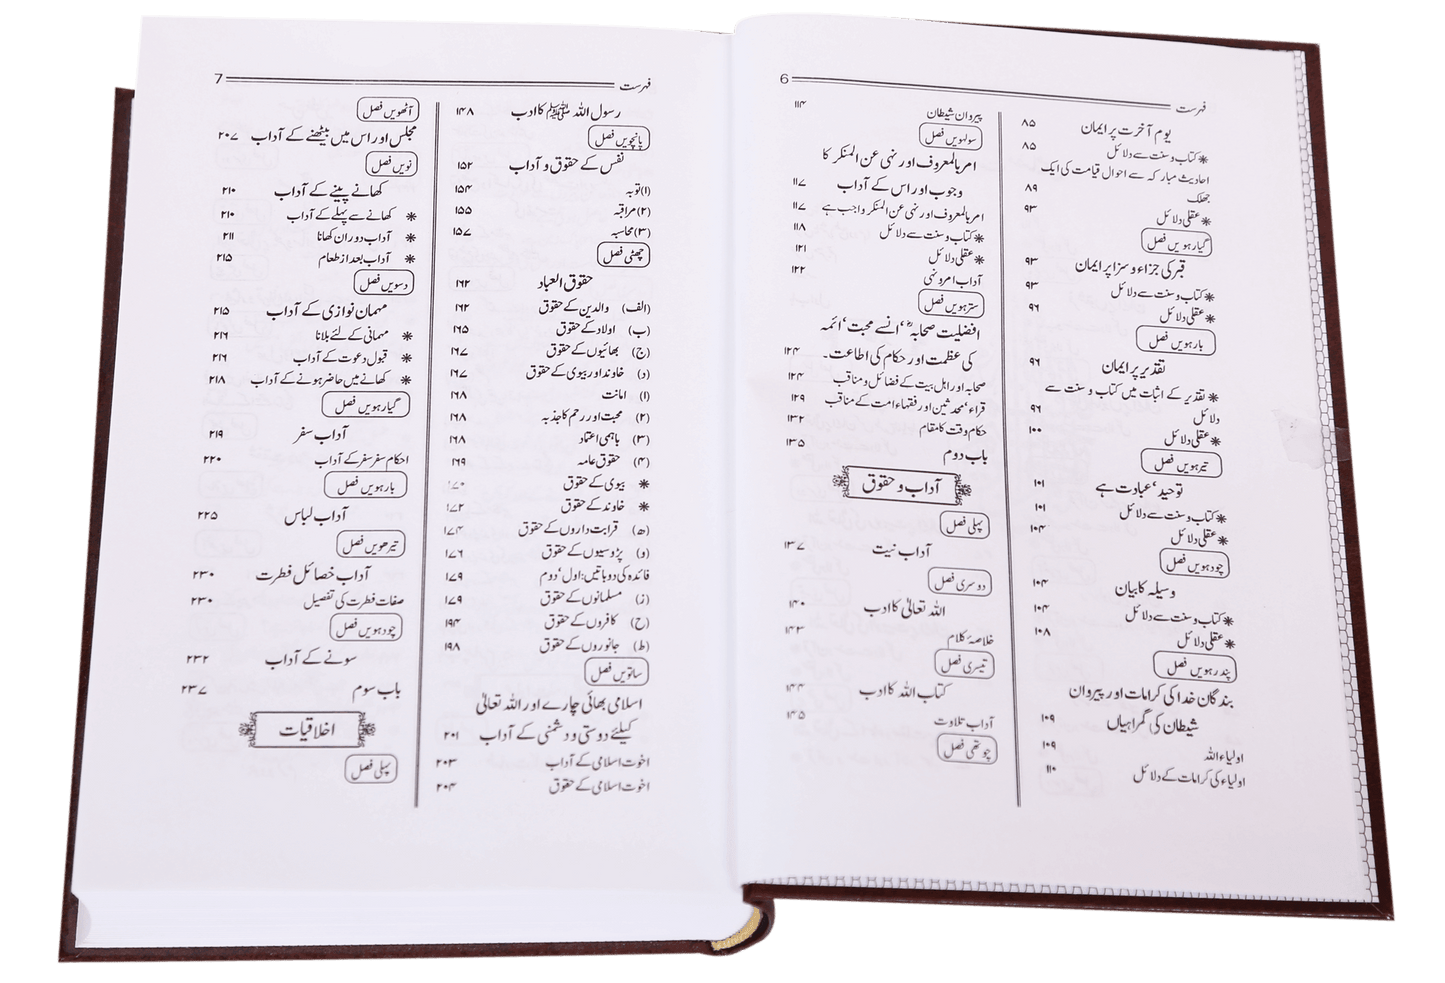 فہرست 6
یوم آخرت پر ایمان ۸۵
❋ کتاب و سنت سے دلائل ۸۵
احادیث مبارکہ سے احوال قیامت کی ایک
جھلک ۸۹
❋ عقلی دلائل ۹۳
گیارہویں فصل
قبر کی جزاء و سزا پر ایمان ۹۳
❋ کتاب و سنت سے دلائل ۹۳
❋ عقلی دلائل ۹۶
بارہویں فصل
تقدیر پر ایمان ۹۶
❋ تقدیر کے اثبات میں کتاب و سنت سے
دلائل ۹۶
❋ عقلی دلائل ۱۰۰
تیرہویں فصل
توحید ‘عبادت ہے ۱۰۱
❋ کتاب و سنت سے دلائل ۱۰۱
❋ عقلی دلائل ۱۰۴
چودہویں فصل
وسیلہ کا بیان ۱۰۴
❋ کتاب و سنت سے دلائل ۱۰۴
❋ عقلی دلائل ۱۰۸
پندرہویں فصل
بندگان خدا کی کرامات اور پیروان
شیطان کی گمراہیاں ۱۰۹
اولیاء اللہ ۱۰۹
اولیاء کی کرامات کے دلائل ۱۱۰
پیروان شیطان ۱۱۴
سولہویں فصل
امر بالمعروف اور نہی عن المنکر کا
وجوب اور اس کے آداب ۱۱۷
امر بالمعروف اور نہی عن المنکر واجب ہے ۱۱۷
❋ کتاب و سنت سے دلائل ۱۱۸
❋ عقلی دلائل ۱۲۱
آداب امر و نہی ۱۲۲
سترہویں فصل
افضلیت صحابہؓ ‘ انسے محبت ‘ ائمہ
کی عظمت اور حکام کی اطاعت۔ ۱۲۴
صحابہ اور اہل بیت کے فضائل و مناقب ۱۲۴
قراء ‘ محدثین اور فقہاء امت کے مناقب ۱۲۹
حکام وقت کا مقام ۱۳۲
باب دوم ۱۳۵
آداب و حقوق
پہلی فصل
آداب نیت ۱۳۷
دوسری فصل
اللہ تعالیٰ کا ادب ۱۴۰
خلاصۂ کلام ۱۴۳
تیسری فصل
کتاب اللہ کا ادب ۱۴۴
آداب تلاوت ۱۴۵
چوتھی فصل
فہرست 7
رسول اللہ ﷺ کا ادب ۱۴۸
پانچویں فصل
نفس کے حقوق و آداب ۱۵۲
(۱) توبہ ۱۵۴
(۲) مراقبہ ۱۵۵
(۳) محاسبہ ۱۵۷
چھٹی فصل
حقوق العباد ۱۶۲
(الف) والدین کے حقوق ۱۶۲
(ب) اولاد کے حقوق ۱۶۵
(ج) بھائیوں کے حقوق ۱۶۷
(د) خاوند اور بیوی کے حقوق ۱۶۷
(۱) امانت ۱۶۸
(۲) محبت اور رحم کا جذبہ ۱۶۸
(۳) باہمی اعتماد ۱۶۸
(۴) حقوق عامہ ۱۶۹
❋ بیوی کے حقوق ۱۷۰
❋ خاوند کے حقوق ۱۷۲
(ھ) قرابت داروں کے حقوق ۱۷۴
(و) پڑوسیوں کے حقوق ۱۷۶
فائدہ کی دو باتیں: اول ‘ دوم ۱۷۹
(ز) مسلمانوں کے حقوق ۱۷۹
(ح) کافروں کے حقوق ۱۹۴
(ط) جانوروں کے حقوق ۱۹۸
ساتویں فصل
اسلامی بھائی چارے اور اللہ تعالیٰ
کیلئے دوستی و دشمنی کے آداب ۲۰۱
اخوت اسلامی کے آداب ۲۰۳
اخوت اسلامی کے حقوق ۲۰۴
آٹھویں فصل
مجلس اور اس میں بیٹھنے کے آداب ۲۰۷
نویں فصل
کھانے پینے کے آداب ۲۱۰
❋ کھانے سے پہلے کے آداب ۲۱۰
❋ آداب دوران کھانا ۲۱۱
❋ آداب بعد از طعام ۲۱۵
دسویں فصل
مہمان نوازی کے آداب ۲۱۵
❋ مہمانی کے لئے بلانا ۲۱۶
❋ قبول دعوت کے آداب ۲۱۶
❋ کھانے میں حاضر ہونے کے آداب ۲۱۸
گیارہویں فصل
آداب سفر ۲۱۹
احکام سفر سفر کے آداب ۲۲۰
بارہویں فصل
آداب لباس ۲۲۵
تیرھویں فصل
آداب خصائل فطرت ۲۳۰
صفات فطرت کی تفصیل ۲۳۰
چودہویں فصل
سونے کے آداب ۲۳۲
باب سوم ۲۳۷
اخلاقیات
پہلی فصل